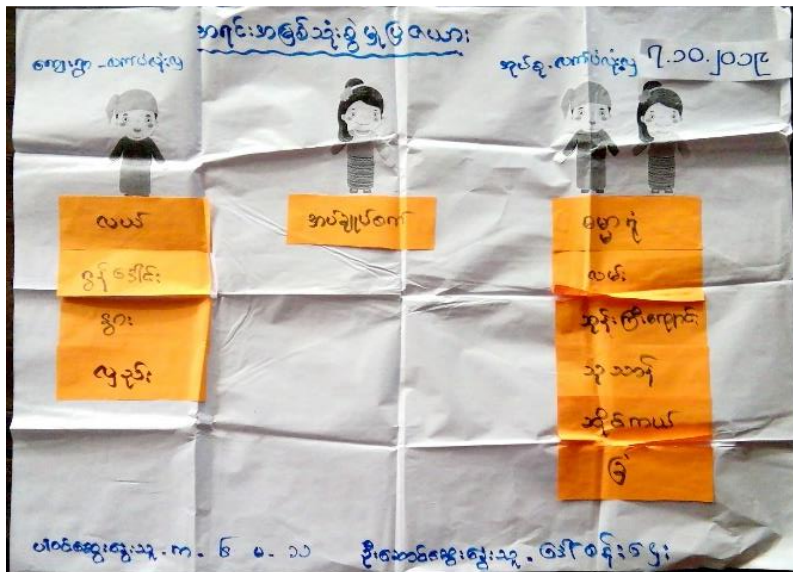 အရင်းအမြစ်သုံးစွဲမှုပြဇယား
ကျေးရွာ - လက်ပံလှ
အုပ်စု - လက်ပံလှ ၇.၁၀.၂၀၁၉
လယ်
ထွန်ဒေါင်း
နွား
လှည်း
အပ်ချုပ်စက်
ဓမ္မာရုံ
လမ်း
ဘုန်းကြီးကျောင်း
သုသာန်
ဆိုင်ကယ်
ခြံ
ပါဝင်ဆွေးနွေးသူ - က - ၆ မ - ၁၁
ဦးဆောင်ဆွေးနွေးသူ - ဒေါ်စန်းဌေး